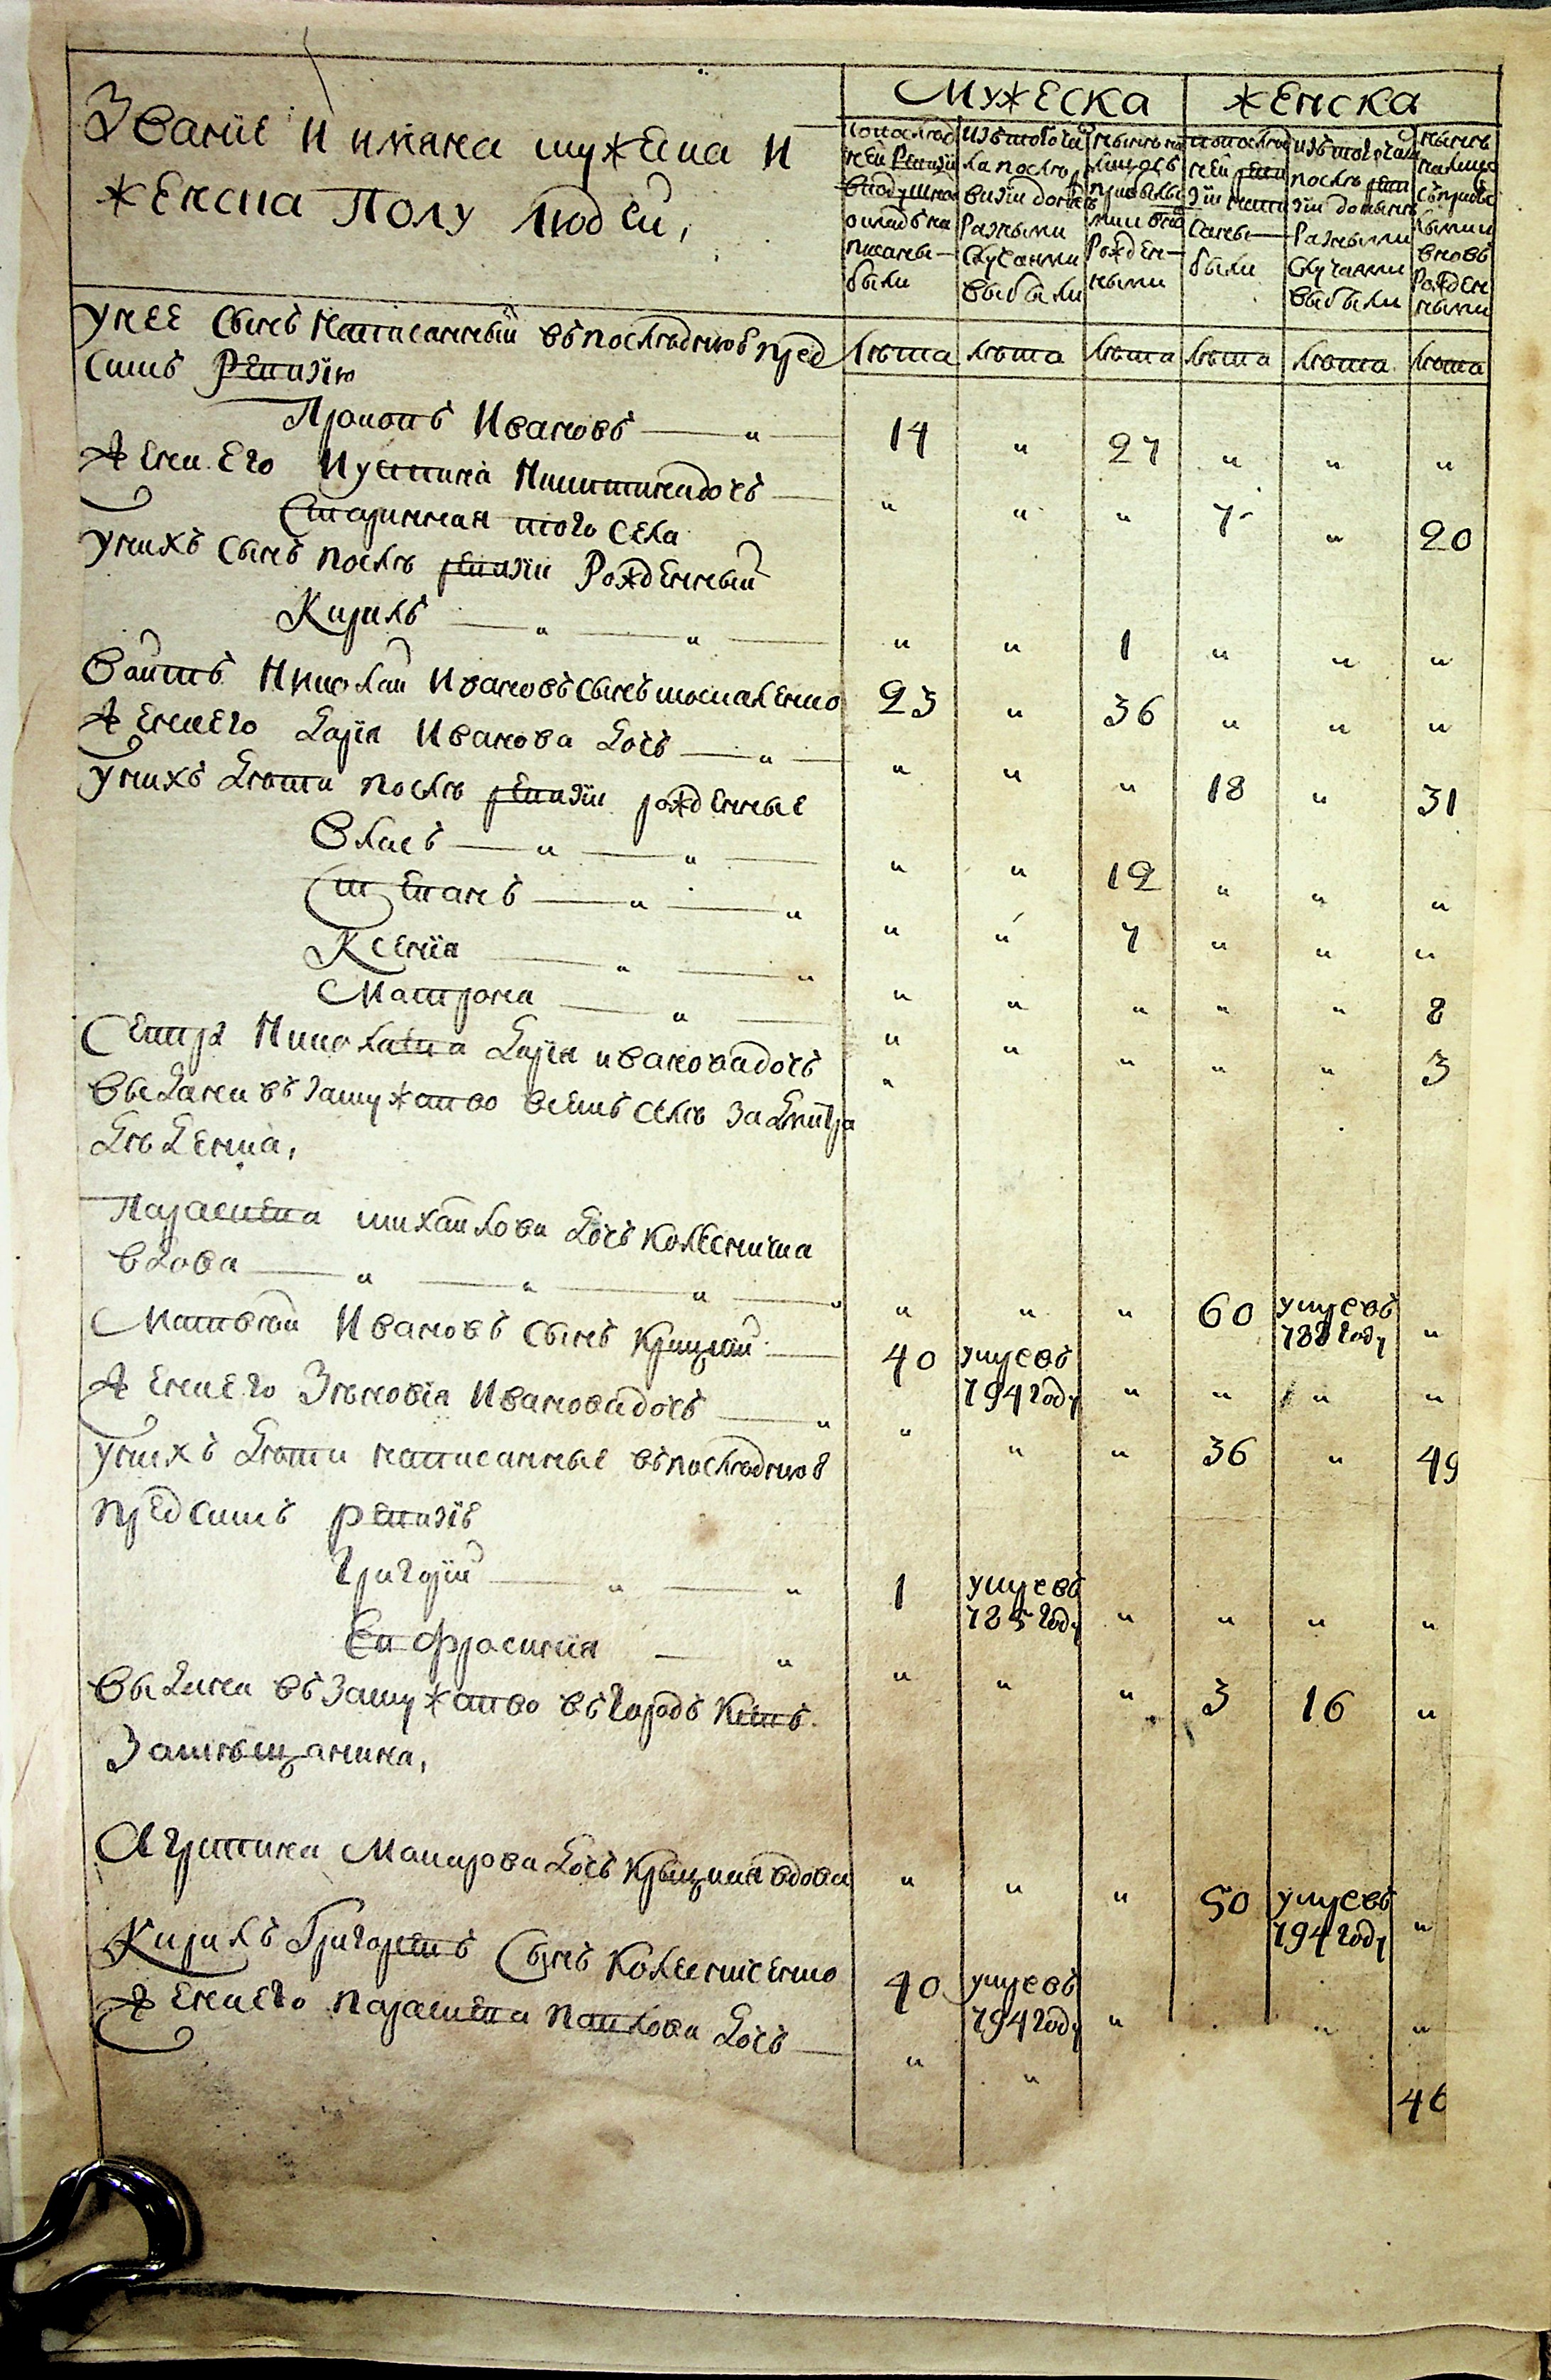 Званїе и имяна мужеска и
женска Полу людей,
Мужеска
женска
по послед
ней Ревизїи
в подушной
окладъ на
писаны
были
изъ того чи
ла послѣ ре
визїи до нынѣ
Разными
случаями
выбыли
нынѣ на
лицо съ
прибылы
ми и вно
Рожден
ными
по послед
ней реви
зїи напи
саны
были
изъ того числа
послѣ реви
зїи до нынѣ
Разными
случаями
выбыли
нынѣ
на лицо
съ прибы
лыми и
вновь
Рожден
ными
лѣта лѣта лѣта лѣта лѣта лѣта
У нее сынъ написанный въ последнюю пред
симъ Ревизїю
Прокопъ Ивановъ — „ — 14 „ 27 „ „ „
Жена его Иустина Никитина дочь — „ „ „ 7 „ 20
Старинная того села
У нихъ сынъ послѣ ревизїи Рожденный
Кирилъ — „ — „ — „ „ 1 „ „ „
Войтъ Николай Ивановъ сынъ Москаленко 23 „ 36 „ „ „
Жена его Дарїя Иванова дочь — „ — „ „ „ 18 „ 31
У нихъ дѣти послѣ ревизїи рожденные
Власъ — „ — „ — „ „ 12 „ „ „
Степанъ — „ — „ „ „ 7 „ „ „
Ксенїя — „ — „ „ „ „ „ „ 8
Матрона — „ — „ „ „ „ „ 3
Сестра Николаева Дарїя Иванова дочь „
выдана въ замужство в семъ селѣ за Дмитра
Дѣденка,
Параскева Михайлова дочь Колесничка
вдова — „ — „ — „ — „ „ „ „ 60 умре въ 788 году „
Матвѣй Ивановъ сынъ Крицкий — 40 умре въ 794 году „ „ „ „
Жена его Зѣновїя Иванова дочь — „ „ „ „ 36 „ 49
У нихъ дѣти написанные въ последнюю
пред симъ ревизїе
Григорїй — „ — „ 1 умре въ 785 году „ „ „ „
Евфросинїя — „ „ „ „ 3 16 „
выдана въ замужство въ городъ Кїевъ
За мѣщанина,
Агрипина Макарова дочь вдова „ „ „ 50 умре въ 794 году „
Кирилъ Григорьевъ Сынъ Колесниченко 40 умре въ 794 году „ „ „
Жена его Параскева Павлова дочь — „ „ 46